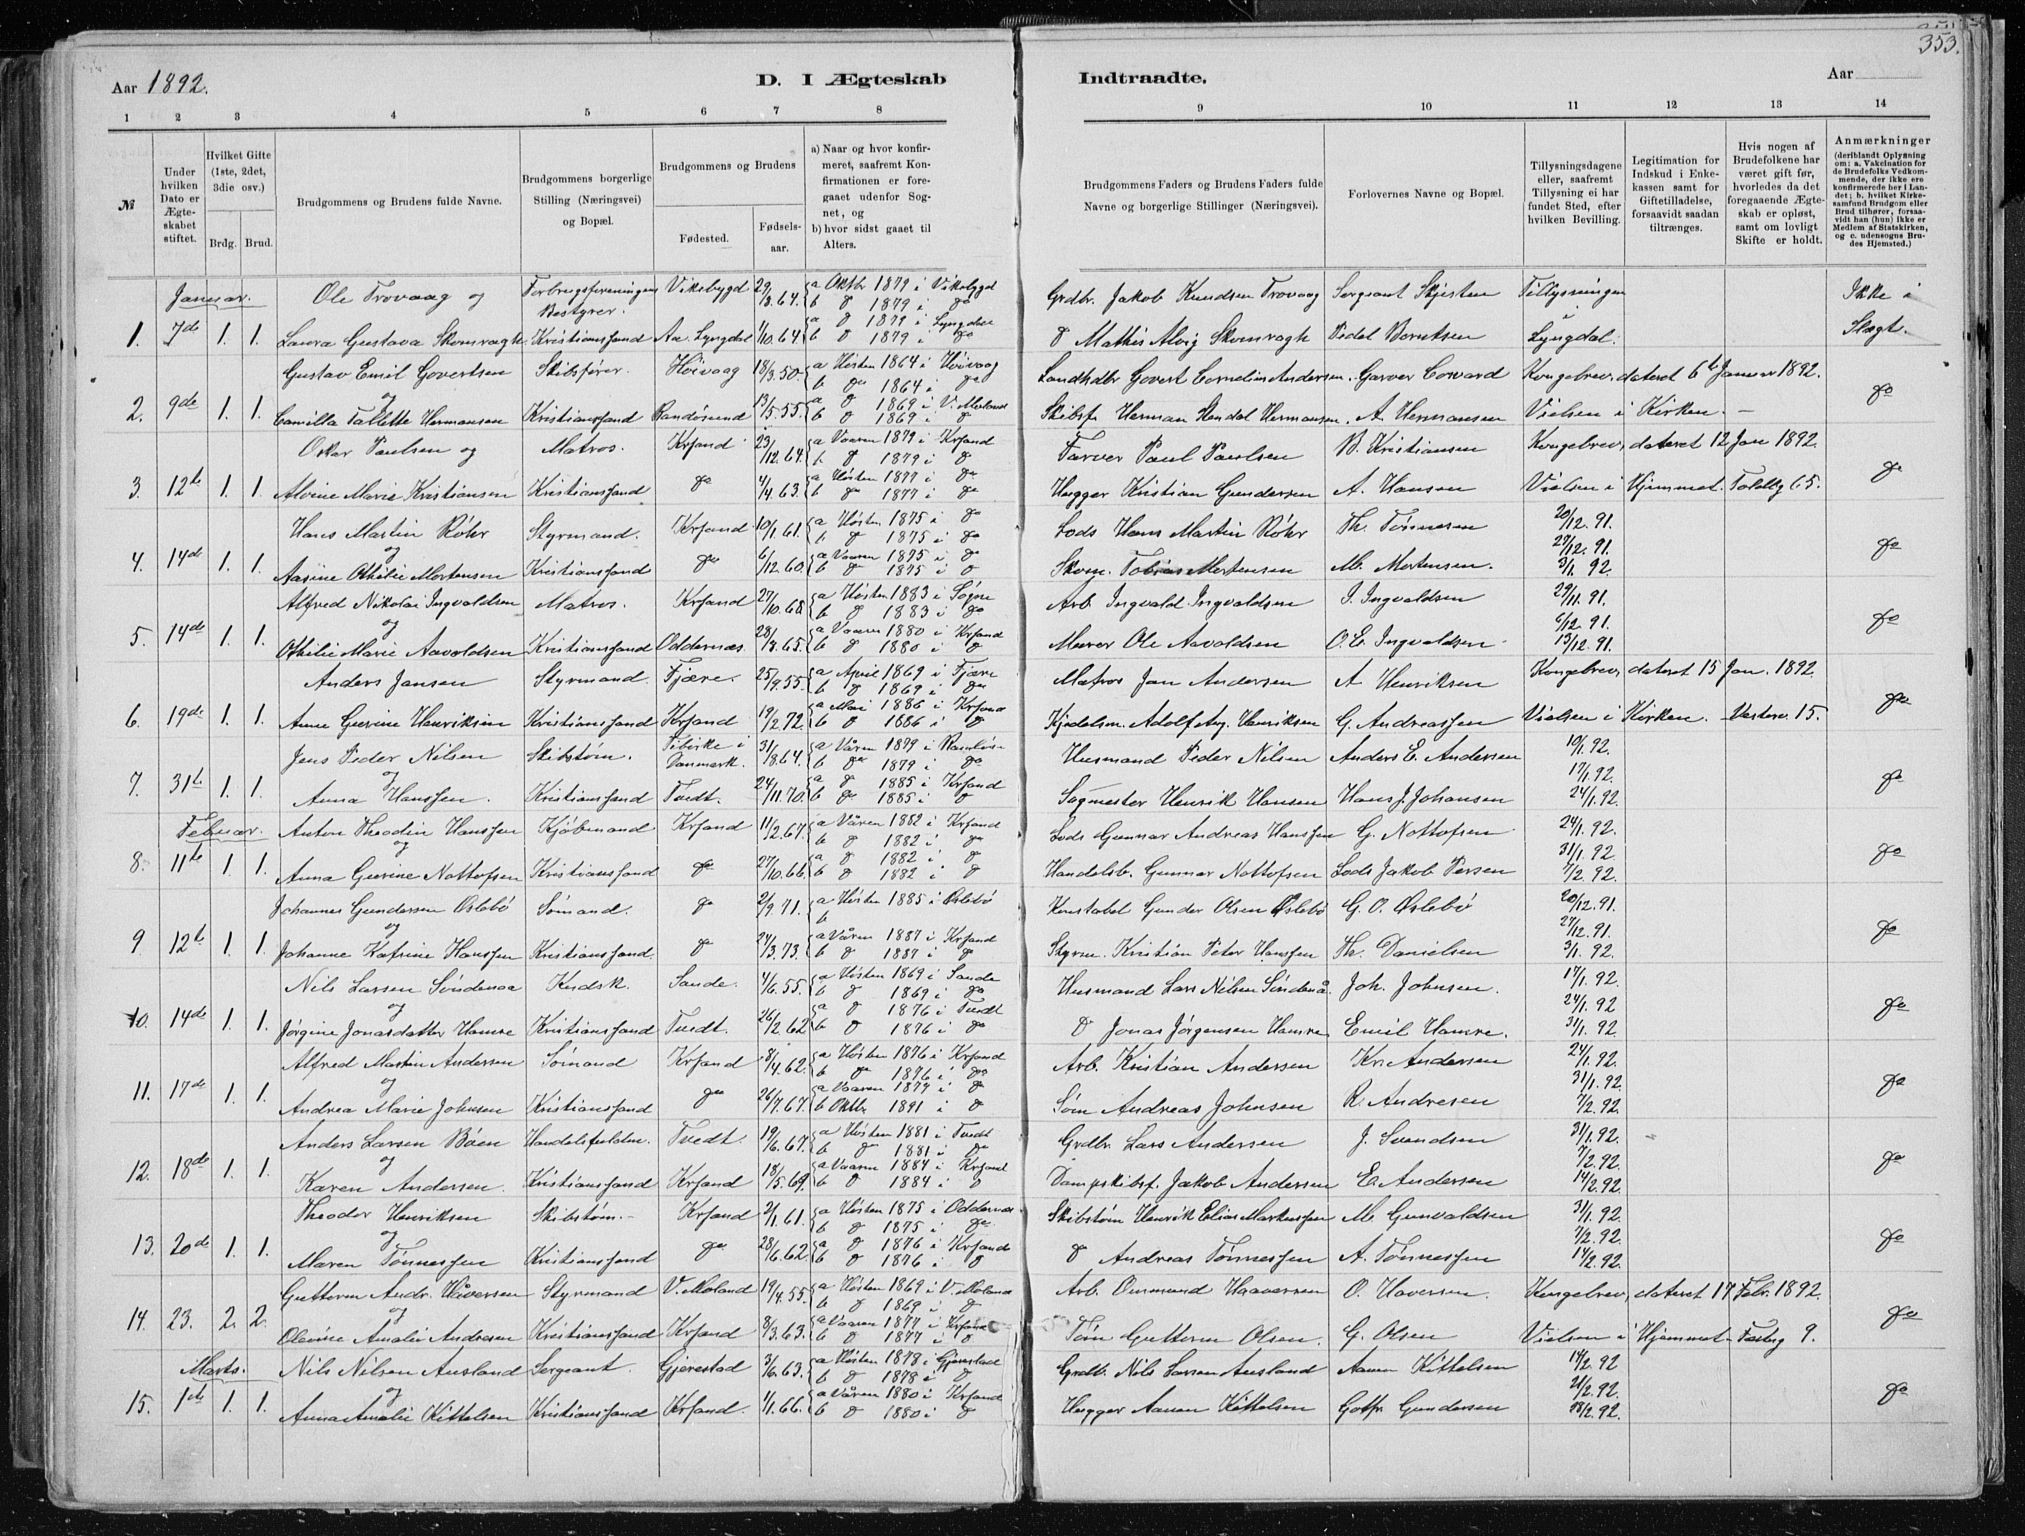 353.
Aar 1892.
D. I Ægteskab
Indtraadte.
Aar
1 2 3 4 5 6 7 8
9 10 11 12 13 14
№
Under hvilken Dato er Ægteskabet stiftet.
Hvilket Gifte (1ste, 2det, 3die osv.)
Brdg. Brud.
Brudgommens og Brudens fulde Navne.
Brudgommens borgerlige Stilling (Næringsvei) og Bopæl.
Brudgommens og Brudens
Fødested.
Fødselsaar.
a) Naar og hvor konfirmeret, saafremt Konfirmationen er foregaaet udenfor Sognet, og
b) hvor sidst gaaet til Alters.
Brudgommens Faders og Brudens Faders fulde Navne og borgerlige Stillinger (Næringsvei).
Forlovernes Navne og Bopæl.
Tillysningsdagene eller, saafremt Tillysning ei har fundet Sted, efter hvilken Bevilling.
Legitimation for Indskud i Enkekassen samt for Giftetilladelse, forsaavidt saadan tiltrænges.
Hvis nogen af Brudefolkene har været gift før, hvorledes da det foregaaende Ægteskab er opløst, samt om lovligt Skifte er holdt.
Anmærkninger
(deriblandt Oplysning om: a. Vakcination for de Brudefolks Vedkommende, der ikke ere konfirmerede her i Landet; b. hvilket Kirkesamfund Brudgom eller Brud tilhører, forsaavidt han (hun) ikke er Medlem af Statskirken, og c. udensogns Brudes Hjemsted.)
Januar. Ole Trovaag og Forbrugsforeningens Bestyrer. Viksbygd 29/3.64. a Oktbr 1879 i Vikebygd b do 1879 i do Grdbr. Jakob Knudsen Trovaag Sergeant Skjesten Tillysningen Ikke i
1. 7de 1. 1. Laura Gustava Skomragh Kristianssand Au. Lyngdal 1/10.64 a do 1879 i Lyngdal b do 1879 i do do Mathis Alvig Skomragh Pedel Berntsen i Lyngdal. Slægt.
Gustav Emil Govertsen Skibsfører. Høivaag 18/3.50. a Høsten 1864 i Høivaag b do 1864 i do Landhdlr Govert Cornelius Andersen. Garver Coward Kongebrev, dateret 6te Januar 1892.
2. 9de 1. 1. og Camilla Tallette Hermansen Kristianssand Randøsund 13/5.55. a do 1869 i V. Moland b do 1869 i do Skibsf. Herman Hendal Hermansen. A. Hermansen Vielsen i Kirken. — do
Oskar Paulsen og Matros. Krsand 23/12.64. a Vaaren 1879 i Krsand b do 1879 i do Farver Paul Paulsen B. Kristiansen Kongebrev, dateret 12 Jan 1892.
3. 12te 1. 1. Alvine Marie Kristiansen Kristianssand do 4/4.63. a Høsten 1877 i do b do 1877 i do Hugger Kristian Gundersen A. Hansen Vielsen i Hjemmet. Toldbg 65. do
Hans Martin Röhr Styrmand. Krsand 10/1.61. a Høsten 1875 i do b do 1875 i do Lods Hans Martin Röhr Th. Tönnesen 20/12.91.
4. 14de 1. 1. og Aasine Othilie Mortensen Kristianssand do 6/12.60. a Vaaren 1875 i do b do 1875 i do Skom. Tobias Mortensen M. Mortensen. 27/12.91. 3/1.92. do
Alfred Nikolai Ingvaldsen Matros. Krsand 27/10.68 a Høsten 1883 i Søgne b do 1883 i do Arb. Ingvald Ingvaldsen I. Ingvaldsen 29/11.91.
5. 14de 1. 1. og Othilie Marie Aavoldsen Kristianssand Oddernæs 28/3.65. a Vaaren 1880 i Krsand b do 1880 i do Murer Ole Aavoldsen O. E. Ingvaldsen. 6/12.91. 13/12.91. do
Anders Jansen Styrmand. Fjære. 25/9.55. a April 1869 i Fjære b do 1869 i do Matros Jan Andersen A Henriksen Kongebrev, dateret 15 Jan. 1892.
6. 19de 1. 1. Anne Gurine Henriksen Kristianssand Krsand 19/2.72. a Mai 1886 i Krsand b do 1886 i do Kjedelsm. Adolf Aug. Henriksen G. Andreassen Vielsen i Kirken. Vesterv. 15. do
Jens Peder Nilsen Skibstøm. Tibirke i Danmark. 31/8.64. a Våren 1879 i b do 1879 i do Husmand Peder Nilsen Anders E. Andersen 10/1.92.
7. 31te 1. 1. og Anna Hanssen. Kristianssand Tvedt. 24/11.70. a do 1885 i Krsand b do 1885 i do Sagmester Henrik Hansen Hans J. Johansen 17/1.92. 24/1.92. do
Februar. Anton Theodin Hanssen Kjøbmand Krsand 11/2.67. a Våren 1882 i Krsand b do 1882 i do Lods Gunnar Andreas Hanssen G. Nottofsen 24/1.92.
8. 11te 1. 1. og Anna Gurine Nottofsen Kristianssand do 27/10.66. a do 1882 i do b do 1882 i do Handelsb. Gunnar Nottofsen Lods Jakob Persen 31/1.92 7/2.92. do
Johannes Gundersen Øslebö Sømand. do 2/9.71. a Høsten 1885 i Øslebö b Konstabel Gunder Olsen Øslebö G. O. Øslebö 20/12.91.
9. 12te 1. 1. og Johanne Katrine Hanssen Kristianssand do 24/3.73. a Våren 1887 i Krsand b do 1887 i do Styrm. Kristian Peter Hanssen Th. Danielsen 27/12.91 3/1.92. do
Nils Larsen Söndenaa Kudsk. Sande. 4/6.55. a Høsten 1869 i Sande b do 1869 i do Husmand Lars Nilsen Söndenå. Joh. Johnsen. 17/1.92.
10. 14de 1. 1. og Jörgine Jonasdatter Hamre Kristianssand Tvedt. 26/2.62 a do 1876 i Tvedt b do 1876 i do do Jonas Jörgensen Hamre Emil Hamre. 24/1.92 31/1.92 do
Alfred Martin Andersen Sømand Krsand 8/4.62. a Høsten 1876 i Krsand b do 1876 i do Arb. Kristian Andersen Kr. Andersen 24/1.92.
11. 17de 1. 1. og Andrea Marie Johnsen Kristianssand do 26/7.67. a Vaaren 1877 i do b Oktbr 1891 i do Søm Andreas Johnsen R. Andresen 31/1.92. 7/2.92. do
Anders Larsen Böen Handelsfuldm. Tvedt. 19/6.67. a Høsten 1881 i Tvedt b do 1881 i do Grdbr. Lars Andersen J. Svendsen 31/1.92.
12. 18de 1. 1. og Karen Andersen. Kristianssand Krsand 18/5.69. a Vaaren 1884 i Krsand b do 1884 i do Dampskibsf. Jakob Andersen E. Andersen 7/2.92. 14/2.92. do
Theodor Henriksen Skibstøm.- Krsand 2/1.61. a Høsten 1875 i Oddernæs b do 1875 i do Skibstøm Henrik Elias Markussen M. Gunvaldsen 31/1.92.
13. 20de 1. 1. og Maren Tönnessen Kristianssand do 28/6.62. a do 1876 i Krsand b do 1876 i do do Andreas Tönnessen A. Tönnessen 7/2.92. 14/2.92. do
Guttorm Andr. Håversen Styrmand V. Moland 19/4.55. a Høsten 1869 i V. Moland b do 1869 i do Arb. Ommund Haaversen O. Haversen. Kongebrev, dateret 17 Febr. 1892.
14. 23. 2. 2. og Olevine Amalie Andresen Kristianssand Krsand 8/3.63. a Vaaren 1877 i Krsand b do 1877 i do Tøm Guttorm Olsen. G. Olsen Vielsen i Hjemmet. Fæstng 9. do
Marts. Nils Nilsen Ausland Sergeant. Gjerestad 3/6.63. a Høsten 1878 i Gjerestad b do 1878 i do Grdb. Nils Larsen Ausland Aanen Kittelsen 14/2.92
15. 1ste 1. 1. og Anna Amalie Kittelsen Kristianssand Krsand. 1/1.66. a Våren 1880 i Krsand b do 1880 i do Hugger Aanen Kittelsen Gottfr Gundersen 21/2.92. 28/2.92. do